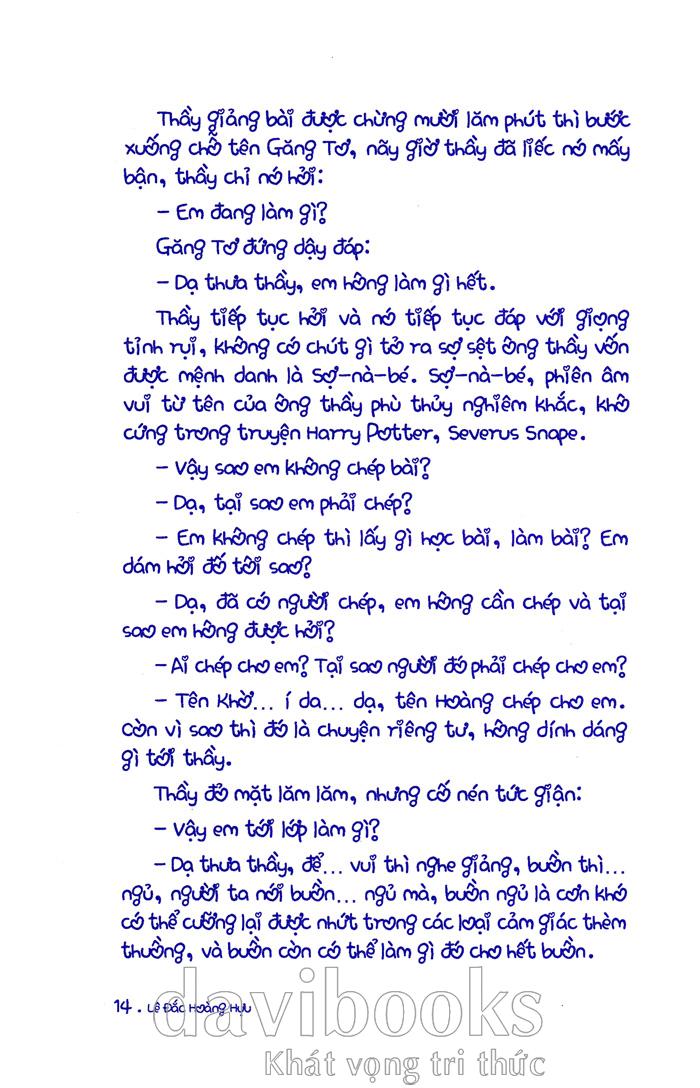 Thầy giảng bài được chừng mười lăm phút thì bước
xuống chỗ tên Găng Tơ, nãy giờ thầy đã liếc nó mấy
bận, thầy chỉ nó hỏi:
– Em đang làm gì?
Găng Tơ đứng dậy đáp:
– Dạ thưa thầy, em hông làm gì hết.
Thầy tiếp tục hỏi và nó tiếp tục đáp với giọng
tỉnh rụi, không có chút gì tỏ ra sợ sệt ông thầy vốn
được mệnh danh là Sợ-nà-bé. Sợ-nà-bé, phiên âm
vui từ tên của ông thầy phù thủy nghiêm khắc, khô
cứng trong truyện Harry Potter, Severus Snape.
– Vậy sao em không chép bài?
– Dạ, tại sao em phải chép?
– Em không chép thì lấy gì học bài, làm bài? Em
dám hỏi đố tôi sao?
– Dạ, đã có người chép, em hông cần chép và tại
sao em hông được hỏi?
– Ai chép cho em? Tại sao người đó phải chép cho em?
– Tên Khờ... í da... dạ, tên Hoàng chép cho em.
Còn vì sao thì đó là chuyện riêng tư, hông dính dáng
gì tới thầy.
Thầy đỏ mặt lăm lăm, nhưng cố nén tức giận:
– Vậy em tới lớp làm gì?
– Dạ thưa thầy, để... vui thì nghe giảng, buồn thì...
ngủ, người ta nói buồn... ngủ mà, buồn ngủ là cơn khó
có thể cưỡng lại được nhứt trong các loại cảm giác thèm
thuồng, và buồn còn có thể làm gì đó cho hết buồn.
14 . Lê Đắc Hoàng Hựu
davibooks
Khát vọng tri thức